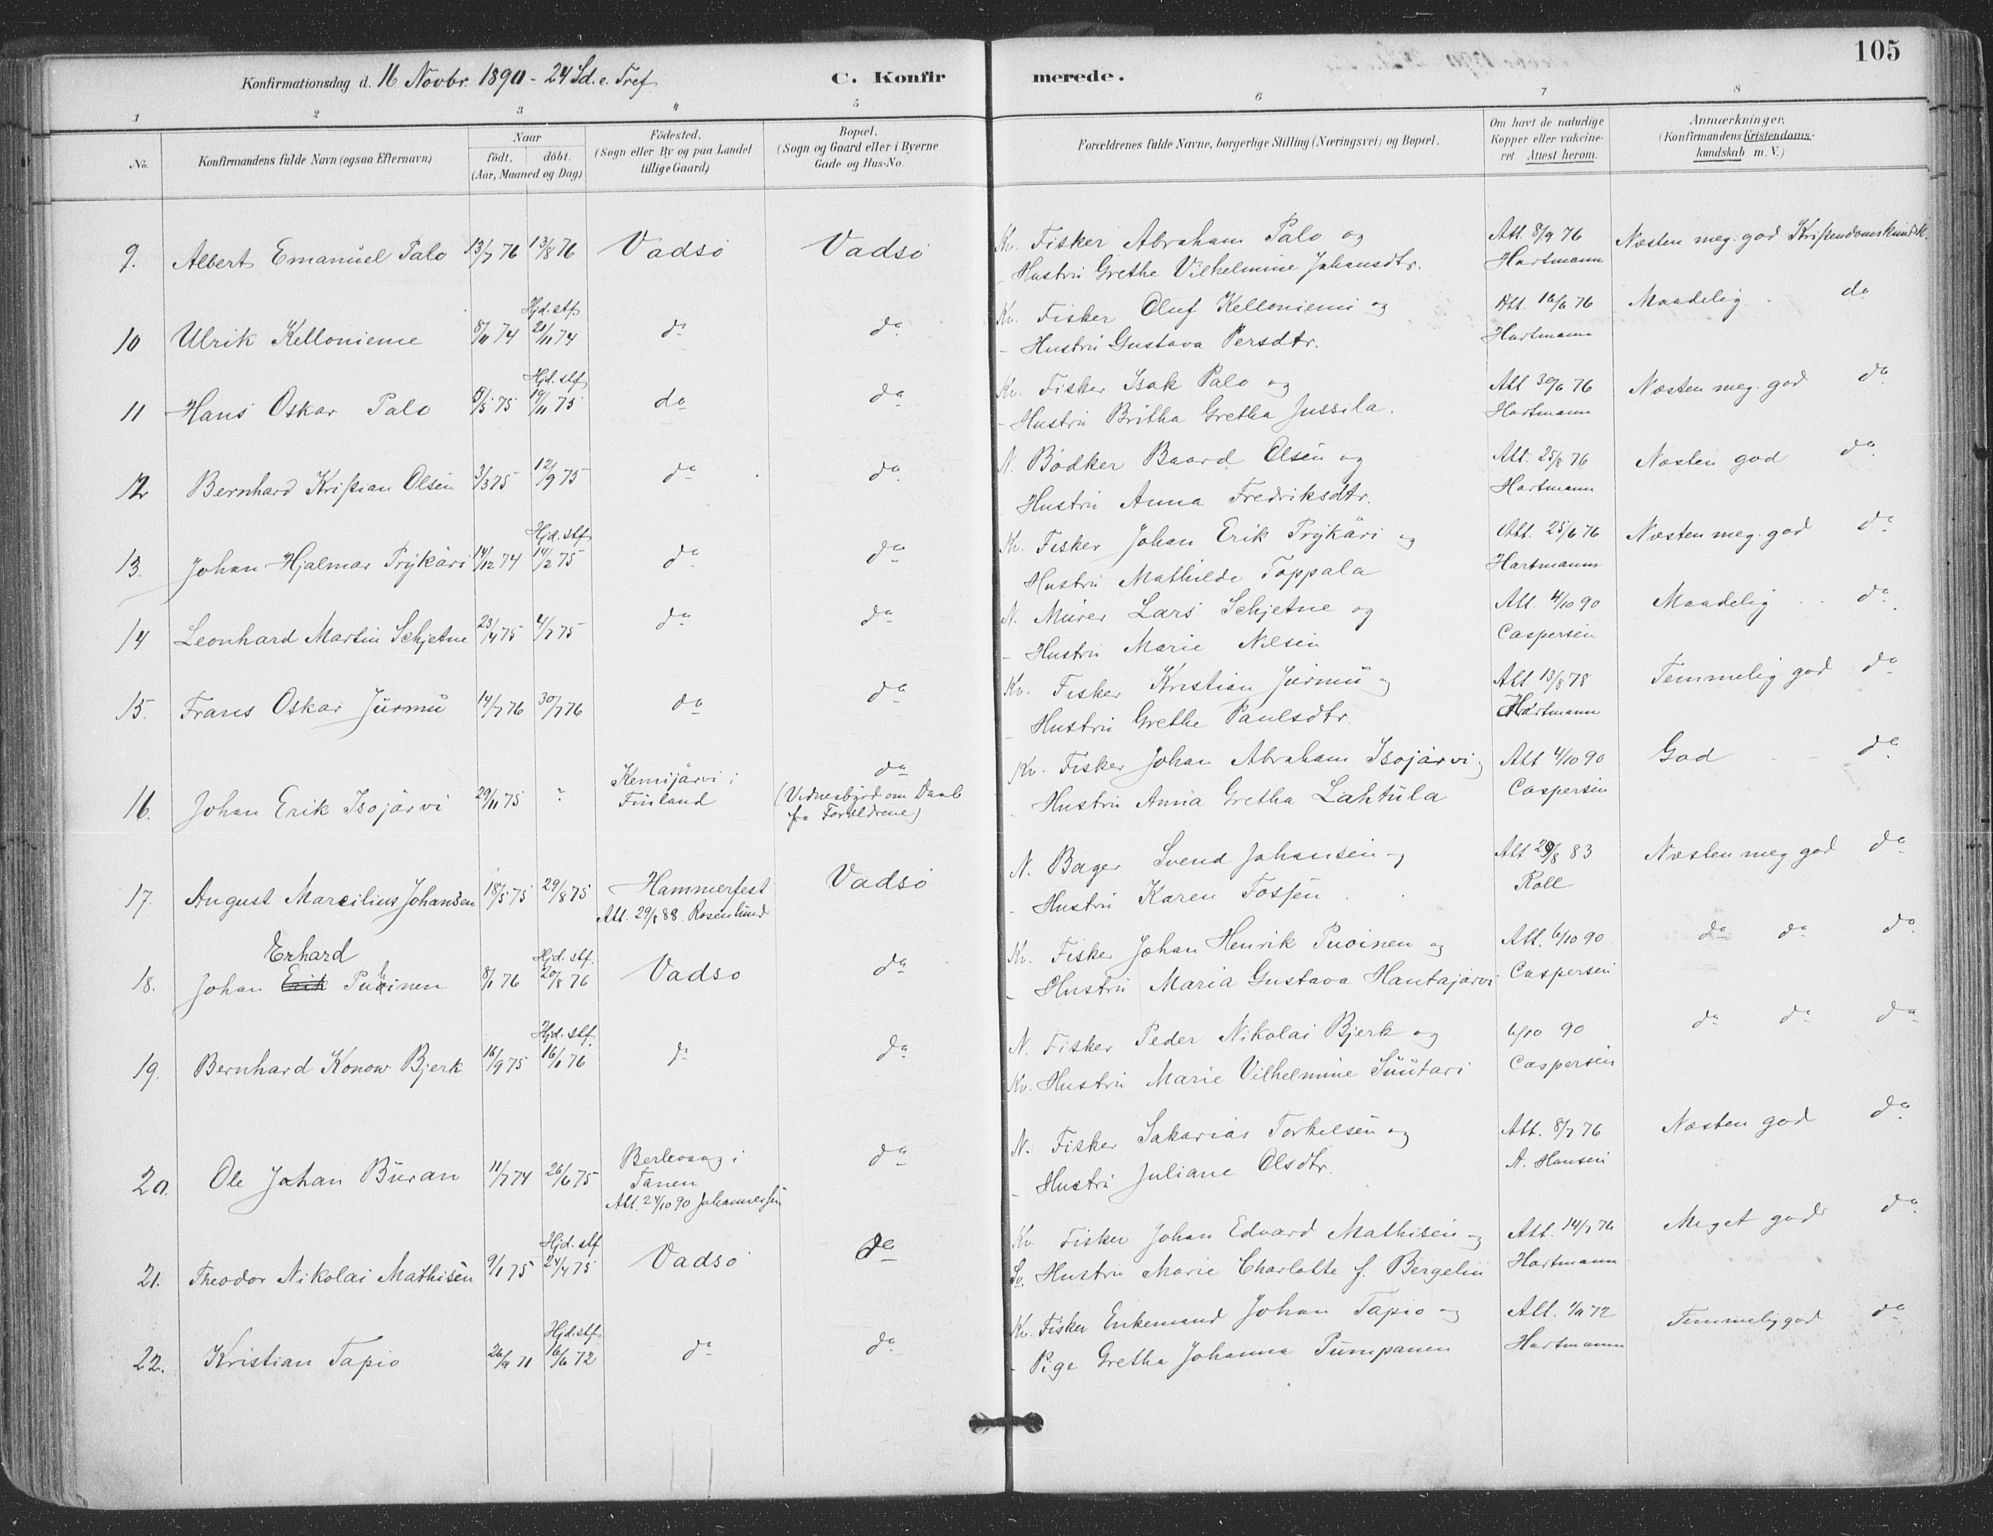 105
Konfirmationsdag d. 16 Novbr. 1890 - 24 Sd. e. Tref.
C. Konfirmerede.
1 2 3 4 5 6 7 8
No.
Konfirmandens fulde Navn (ogsaa Efternavn)
Naar
födt. döbt.
(Aar, Maaned og Dag)
Födested.
(Sogn eller By og paa Landet
tillige Gaard)
Bopæl.
(Sogn og Gaard eller i Byerne
Gade og Hus-No.
Forældrenes fulde Navne, borgerlige Stilling (Næringsvei) og Bopæl.
Om havt de naturlige
Kopper eller vakcine-
ret Attest herom.
Anmærkninger.
(Konfirmandens Kristendoms-
kundskab m. V.)
9. Albert Emanuel Palo 13/7 76 13/8 76 Vadsö Vadsö Kv. Fisker Abraham Palo og Att 8/9 76 Næsten meg. god Kristendomskundsk.
- Hustru Grethe Vilhelmine Johansdtr. Hartmann
10 Ulrik Kellonieme 8/11 74 Hjd. stf. 21/11 74 do do Kv. Fisker Oluf Kelloniemi og Att. 16/6 76 Maadelig do
- Hustru Gustava Persdtr. Hartmann
11 Hans Oskar Palo 5/5 75 Hjd. stf. 19/11 75 do do Kv. Fisker Isak Palo og Att 30/6 76 Næsten meg. god do
- Hustru Britha Gretha Jussila. Hartmann
12 Bernhard Kristian Olsen 3/3 75 12/9 75 do do N. Bödker Baard Olsen og Att. 25/8 76 Næsten god do
Hustru Anna Fredriksdtr. Hartmann
13. Johan Hjalmar Prykäri 14/12 74 Hjd. stf. 14/2 75 do do Kv. Fisker Johan Erik Prykäri og Att. 25/6 76 Næsten meg. god do
Hustru Mathilde Toppala Hartmann
14 Leonhard Martin Schjetne 23/4 75 4/7 75 do do N. Murer Lars Schjetne og Att. 4/10 90 Maadelig do
- Hustru Marie Nilsen Caspersen
15. Frans Oskar Jurmu 14/7 76 30/7 76 do do Kv. Fisker Kristian Jurmu og Att. 13/8 78 Temmelig god do
- Hustru Grethe Paulsdtr. Hartmann
16. Johan Erik Isojärvi 29/11 75 - Kemijärvi i
Finland do
(Vidnesbyrd om Daab
fra Forældrene) Kv. Fisker Johan Abraham Isojärvi og Att 4/10 90 God do
Hustru Anna Gretha Lahtula Caspersen
17. August Marcilius Johansen 18/5 75 29/8 75 Hammerfest
Att. 29/5 88. Rosenlund Vadsö N. Bager Svend Johansen og Att 29/8 83 Næsten meg god do
- Hustru Karen Tossen Roll
18. Johan Erik Erhard Puoinen 8/1 76 Hjd. stf. 20/8 76 Vadsö do Kv. Fisker Johan Henrik Puoinen og Att. 6/10 90 do do do
- Hustru Maria Gustava Hautajärvi Caspersen
19. Bernhard Konow Bjerk 16/9 75 Hjd. stf. 16/1 76 do do N. Fisker Peder Nikolai Bjerk og 6/10 90 do do do
Kv. Hustru Marie Vilhelmine Suutari Caspersen
20. Ole Johan Buran 11/7 74 26/6 75 Berlevaag i
Tanen
Att. 24/10 90 Johannessen do N. Fisker Sakarias Torkelsen og Att. 8/7 76 Næsten god do
- Hustru Juliane Olsdtr. A. Hansen
21. Theodor Nikolai Mathisen 9/1 75 Hjd. stf 24/4 75 Vadsö do Kv. Fisker Johan Edvard Mathisen og Att. 14/7 76 Meget god do
Sv. Hustru Marie Charlotte f. Bergelin Hartmann
22. Kristian Tapio 26/9 71 Hjd. stf. 16/6 72 do do Kv. Fisker Enkemand Johan Tapio og Att. 1/9 72 Temmelig god do
- Pige Gretha Johanna Pumpanen Hartmann